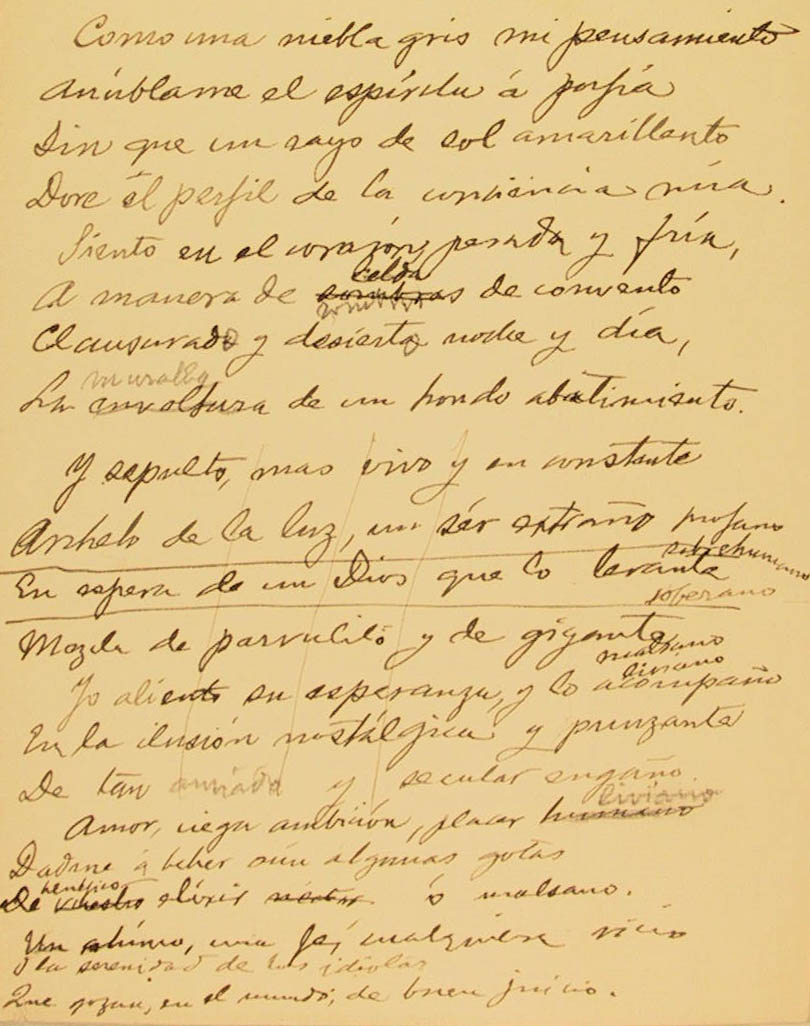 Como una niebla gris mi pensamiento
Anúblame el espíritu á porfía
Sin que un rayo de sol amarillento
Dore el perfil de la conciencia mía.
Siento en el corazón, pesada y fría,
celda
A manera de sombras de convento
Clausurado y desierto noche y día,
muralla
La envoltura de un hondo abatimiento.
Y sepulto, mas vivo y en constante
Anhelo de la luz, un sér extraño profano
sobrehumano
En espera de un Dios que lo levante
soberano
Mezcla de parvulito y de gigante
malsano
liviano
Yo aliento su esperanza, y lo acompaño
En la ilusión nostálgica y punzante
De tan amada y secular engaño.
liviano
Amor, ciega ambición, placer humano
Dadme á beber aún algunas gotas
benéfico
De vuestro elíxir néctar ó malsano.
Un ahinco, una fe, cualquiera vicio
O la serenidad de los idiotas
Que gozan, en el mundo, de buen juicio.